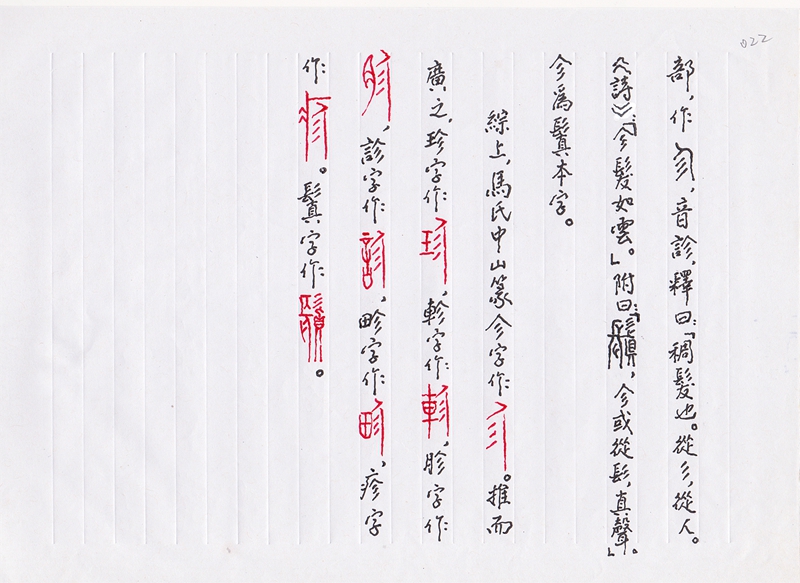 022
部,作㐱,音診,釋曰:「稠髮也。從彡,從人。
《詩》:『㐱髮如雲。』附曰:『鬒,㐱或從髟,真聲。』」
㐱爲鬒本字。
綜上,馬氏中山篆㐱字作㐱。推而
廣之,珍字作珍,軫字作軫,胗字作
胗,診字作診,畛字作畛,疹字
作:疹。鬒字作:鬒。